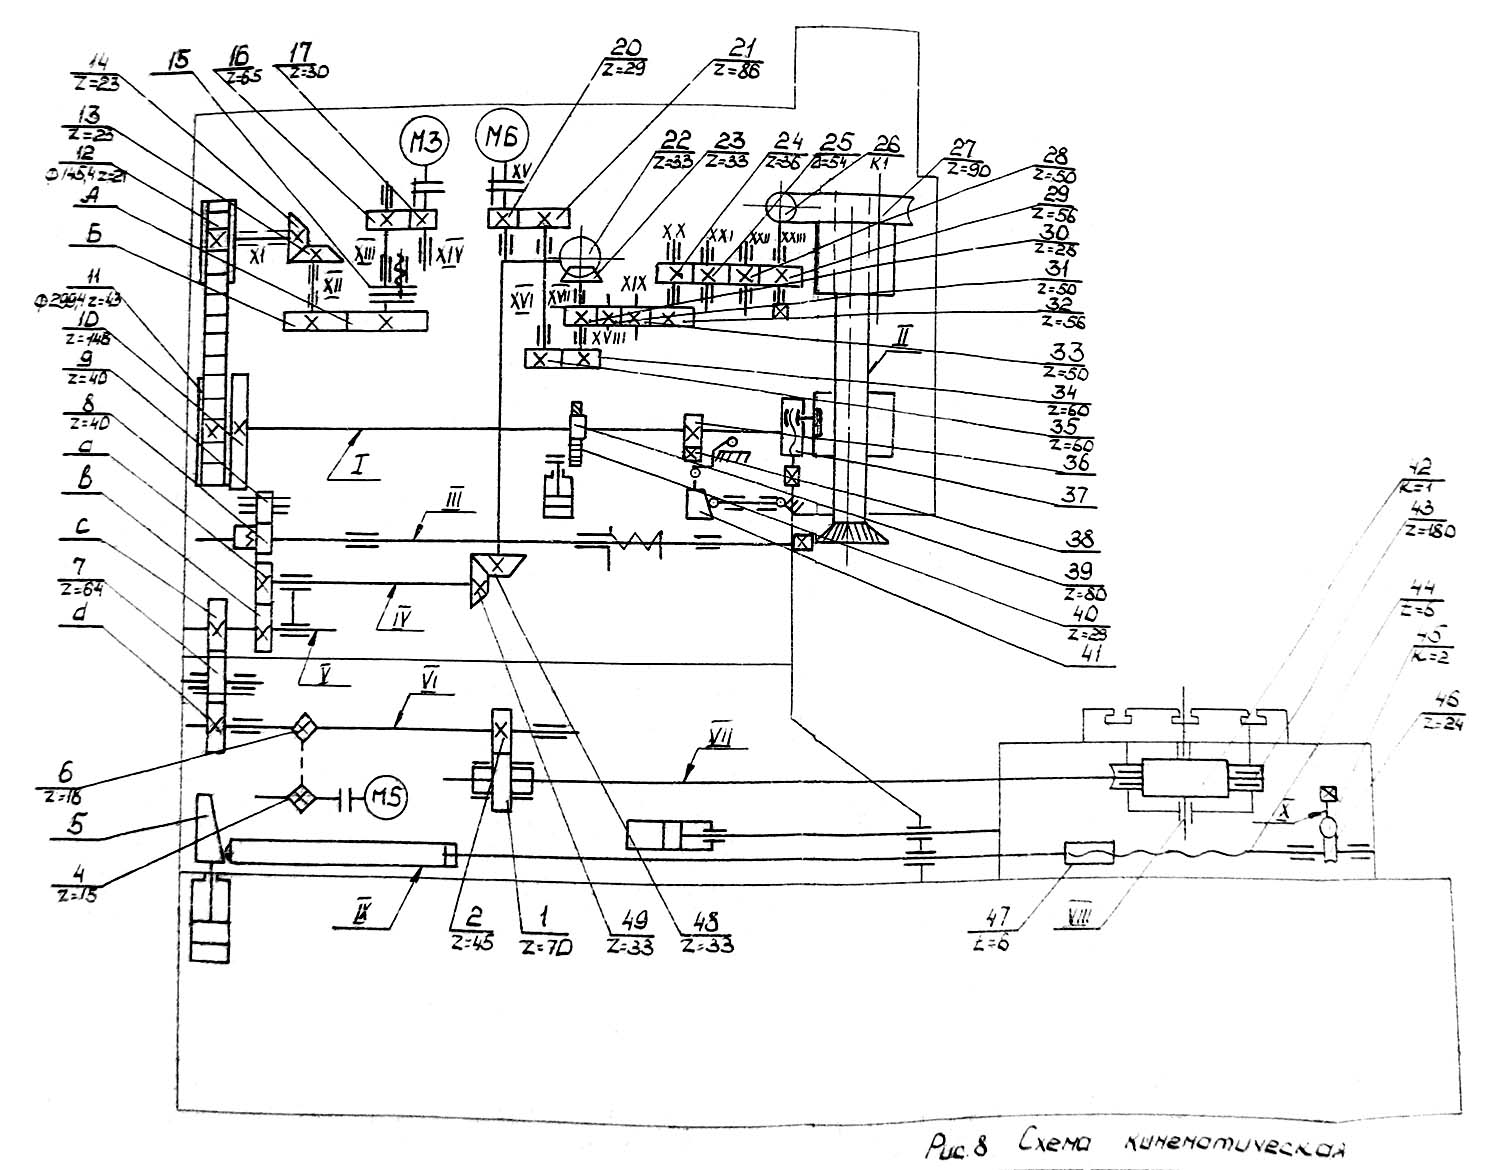 14
Z=23
15
16
Z=65
17
Z=30
20
Z=29
21
Z=86
13
Z=23
М3
М6
22
Z=33
23
Z=33
24
Z=36
25
Z=54
26
К1
27
Z=90
28
Z=50
12
Ф145,4 Z=21
XV
29
Z=56
А
30
Z=28
Б
XI
XII
XIII
XIV
XVI
XVII
XVIII
XIX
XX
XXI
XXII
XXIII
31
Z=50
11
Ф299,4 Z=43
32
Z=56
10
Z=148
II
33
Z=50
9
Z=40
34
Z=60
8
Z=40
35
Z=60
36
а
I
37
42
К=1
в
III
43
Z=180
38
с
39
Z=80
44
Z=6
7
Z=64
IV
40
Z=29
45
К=2
d
V
41
46
Z=24
VI
VII
6
Z=18
М5
X
5
4
Z=15
IX
2
Z=45
1
Z=70
49
Z=33
48
Z=33
47
Z=6
VIII
Рис.8 Схема кинематическая